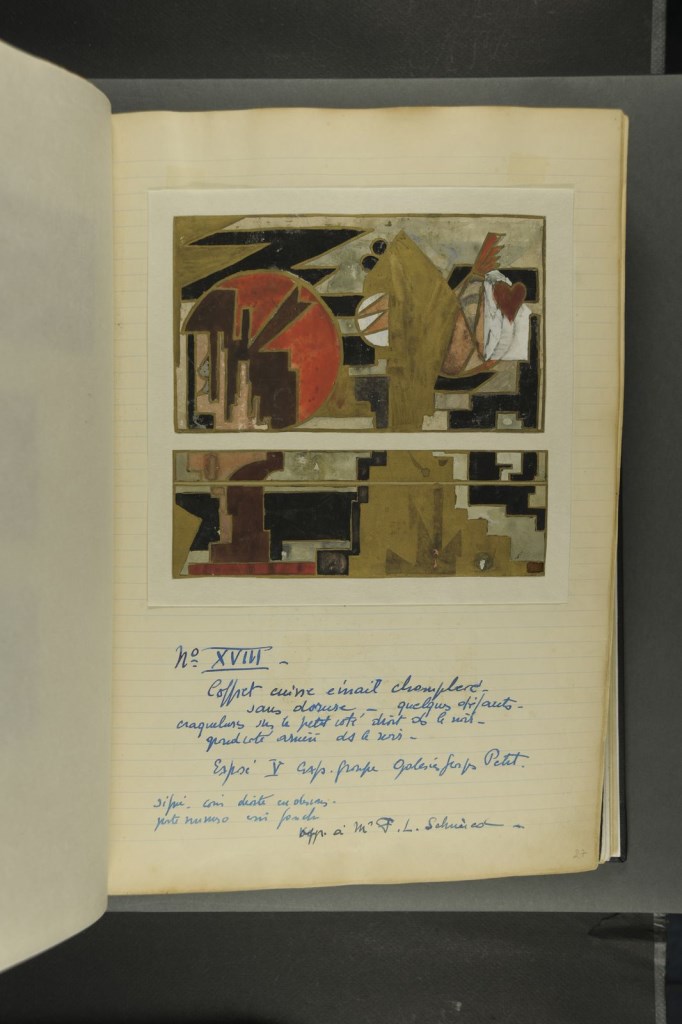 Nº XVIII -
Coffret cuivre émail champlevé -
sans dorure - quelques défauts -
craquelures sur le petit coté droit ds le noir -
grand coté arrière ds le noir -
Exposé V Exp. groupe Galeries Georges Petit.
signé. coin droite en dessous -
porte numéro coin gauche
app. à Mr F. L. Schmied -
27